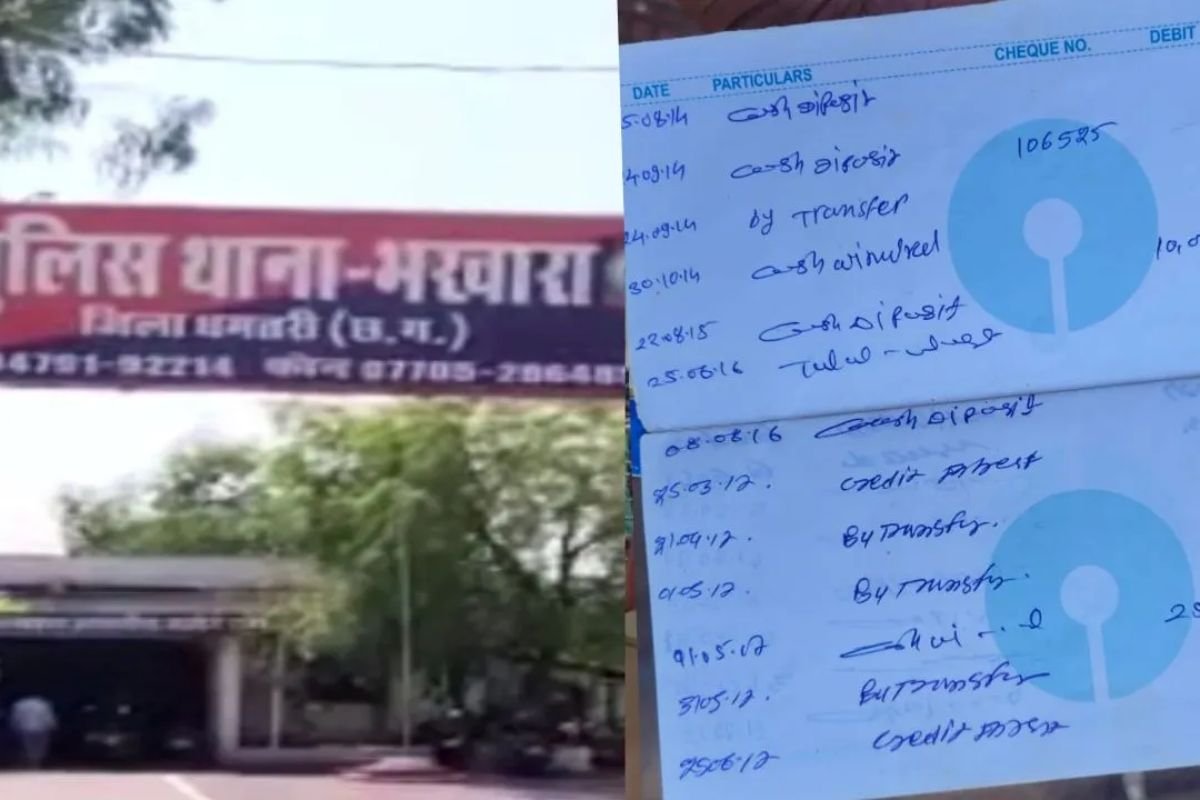 पुलिस थाना-भखारा
जिला धमतरी (छ.ग.)
94791-92214 फोन 07705-286648
DATE PARTICULARS CHEQUE NO. DEBIT
5.08.14 cash Diposit
4.09.14 cash Diposit 106525
24.09.14 by Transfer
30.10.14 cash 10,0
22.08.15 cash Diposit
25.06.16
08.08.16 cash Diposit
25.03.17. credit
21.04.17. By Transfer.
01.05.17. By Transfer.
01.05.17 2
31.05.17. By Transfer
25.06.17 credit